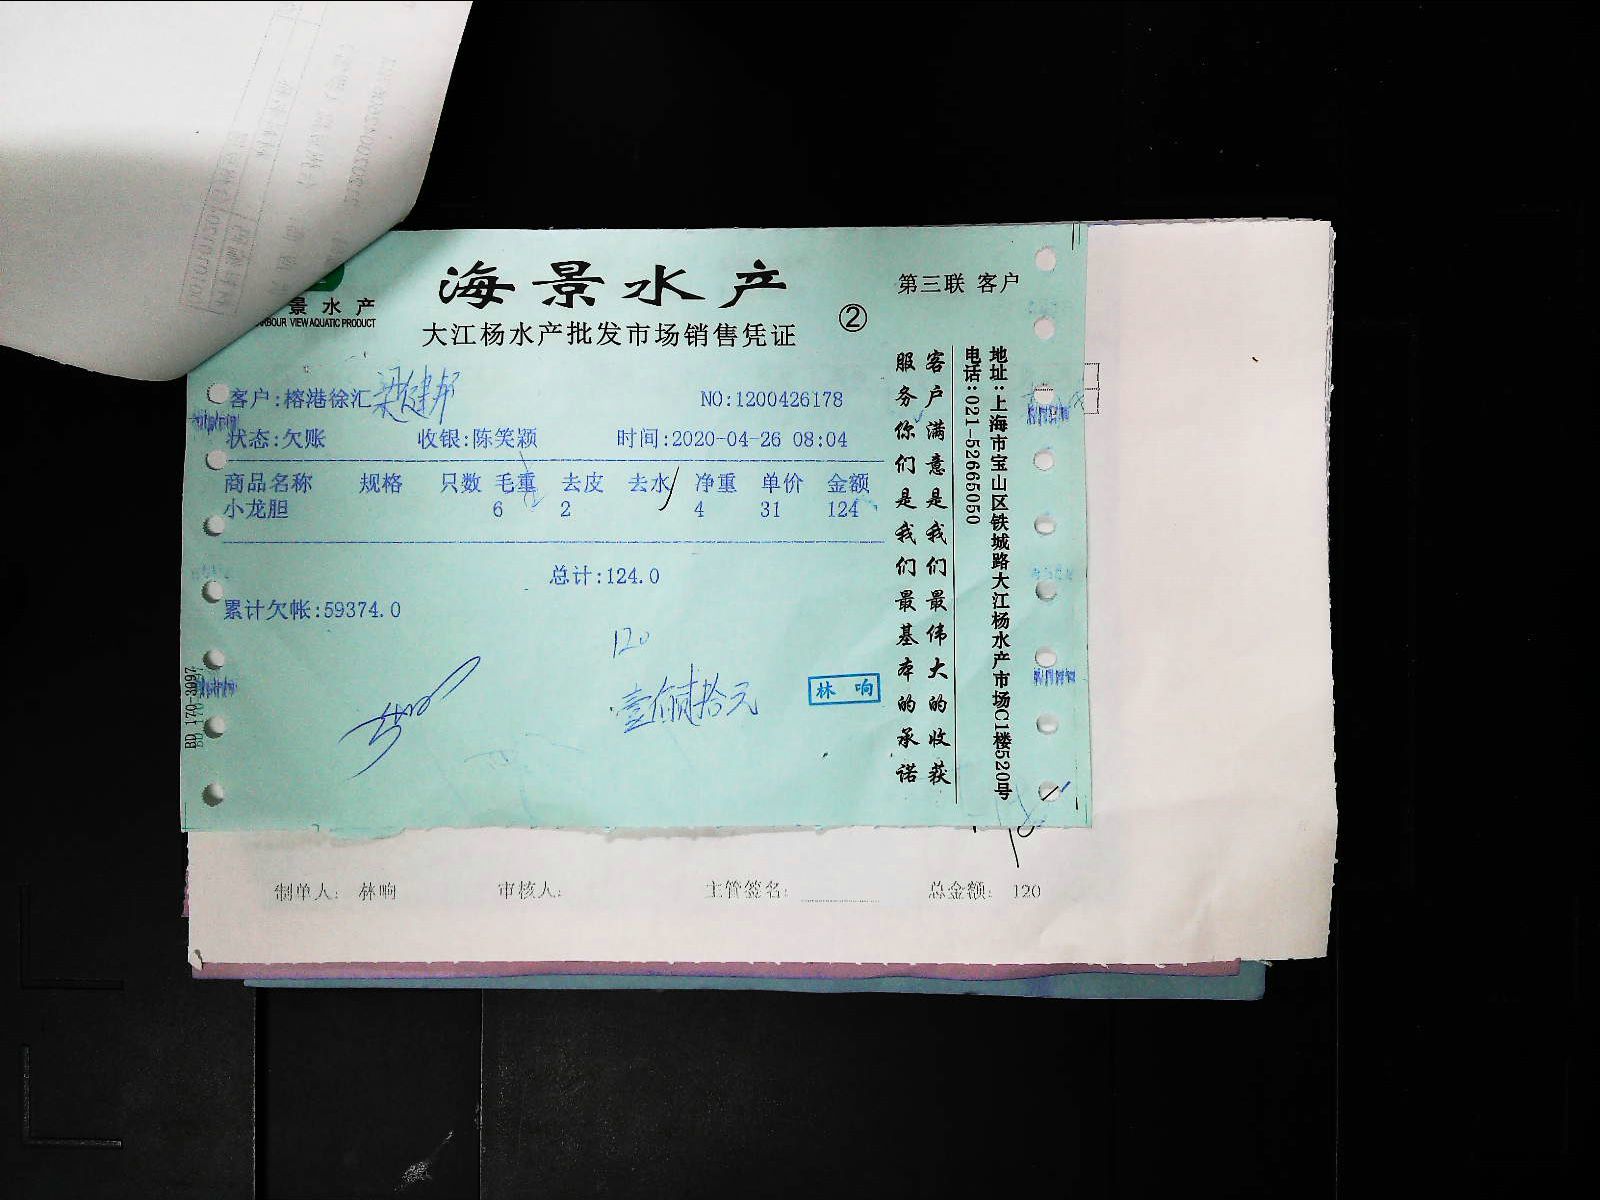 海景水产
大江杨水产批发市场销售凭证
②
第三联 客户
景水产
RBOUR VIEW AQUATIC PRODUCT
客户:榕港徐汇 梁健邦
NO:1200426178
状态:欠账 收银:陈笑颖 时间:2020-04-26 08:04
商品名称 规格 只数 毛重 去皮 去水 净重 单价 金额
小龙胆 6 2 4 31 124
总计:124.0
累计欠帐:59374.0
120
壹佰贰拾元
林响
客户满意是我们最伟大的收获
服务你们是我们最基本的承诺
地址:上海市宝山区铁城路大江杨水产市场C1楼520号
电话:021-52665050
BD 170-3097
制单人: 林响 审核人: 主管签名: 总金额: 120